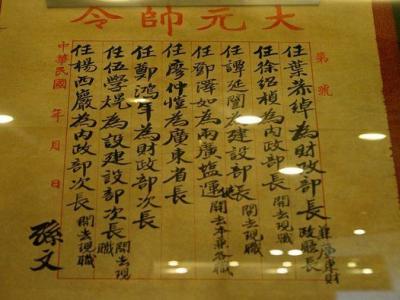 大元帥令
第 號
任葉恭綽為財政部長 兼廣東財政廳長
任徐紹楨為內政部長 開去現職
任譚延闓為建設部長 開去現職
任鄧澤如為兩廣鹽運使 開去本兼各職
任廖仲愷為廣東省長
任鄭鴻年為財政部次長
任伍學熀為建設部次長 開去現職
任楊西巖為內政部次長 開去現職
孫文
中華民國 年 月 日